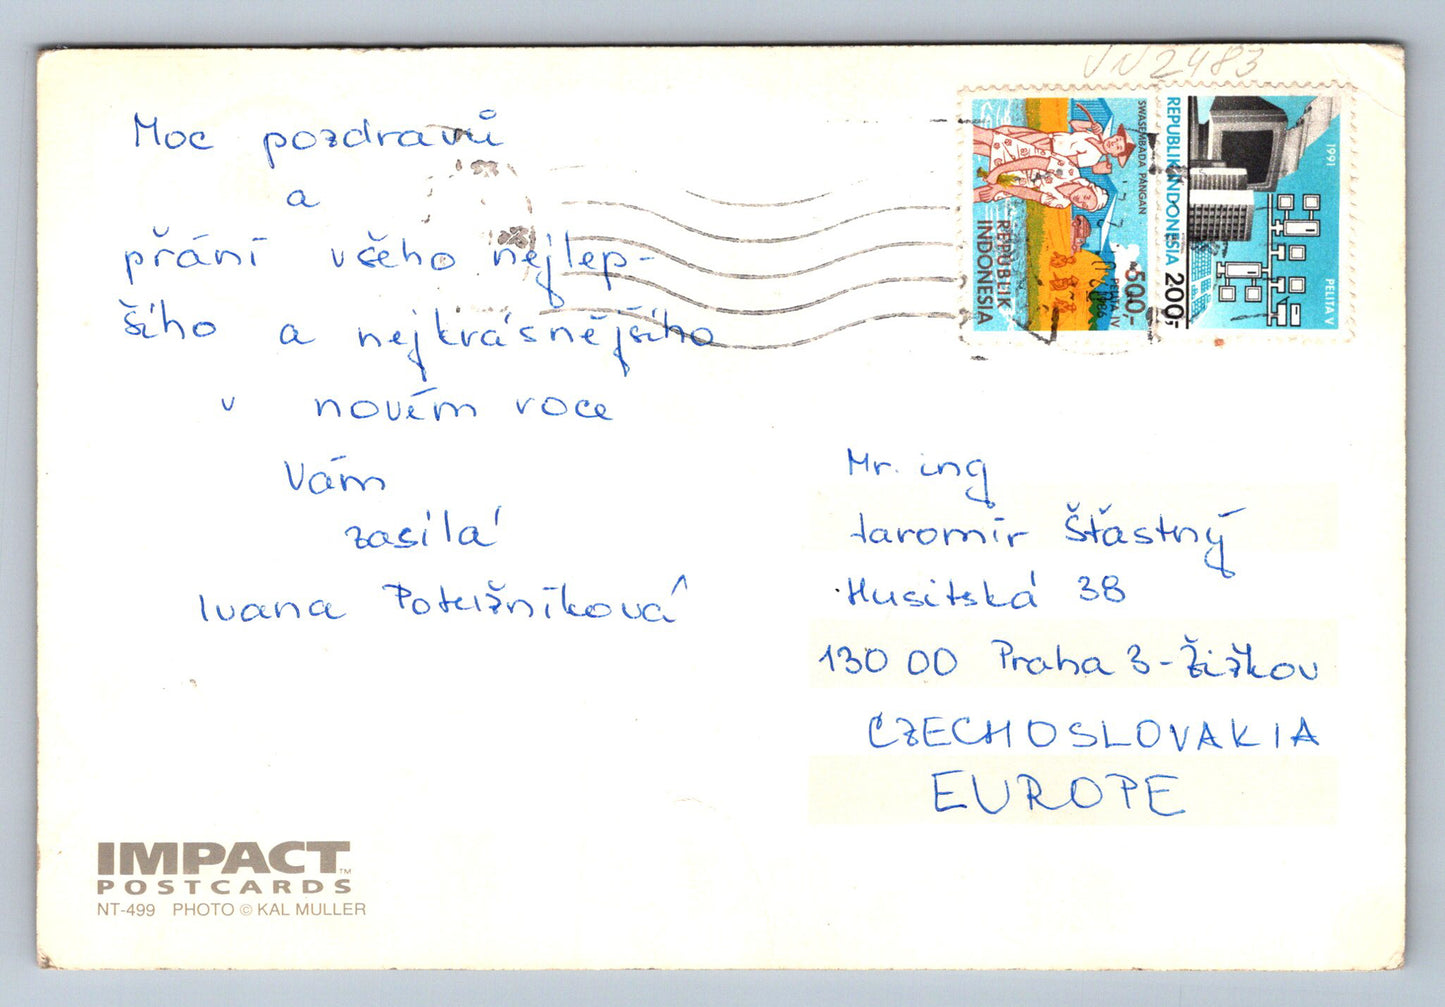 VN2483
Moc pozdravů
a
přání všeho nejlep-
šího a nejkrásnějšího
v novém roce
Vám
zasílá
Ivana
SWASEMBADA PANGAN
REPUBLIK
INDONESIA
500,-
PELITA IV
1986
REPUBLIK INDONESIA 200,-
1991
PELITA V
Mr. ing
Jaromír Šťastný
Husitská 38
130 00 Praha 3-Žižkov
CZECHOSLOVAKIA
EUROPE
IMPACT™
POSTCARDS
NT-499 PHOTO © KAL MULLER